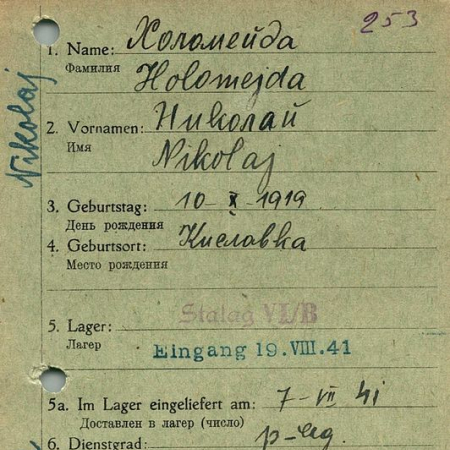 253
1. Name: Холомейда
Фамилия Holomejda
2. Vornamen: Николай
Имя Nikolaj
Nikolaj
3. Geburtstag: 10-X-1919
День рождения
4. Geburtsort: Кисловка
Место рождения
Stalag VI/B
5. Lager:
Лагер
Eingang 19.VIII.41
5a. Im Lager eingeliefert am: 7-VII 41
Доставлен в лагер (число)
6. Dienstgrad: